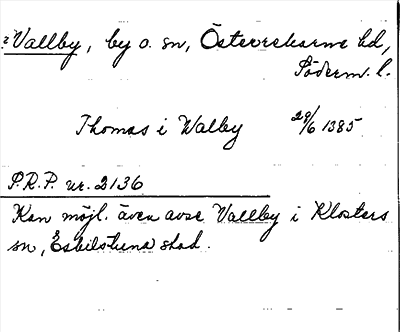 ? Vallby, by o. sn, Österrekarne hd,
Söderm. l.
Thomas i Walby 29/6 1385
P.R.P. nr. 2136
Kan möjl. även avse Vallby i Klosters
sn, Eskilstuna stad.